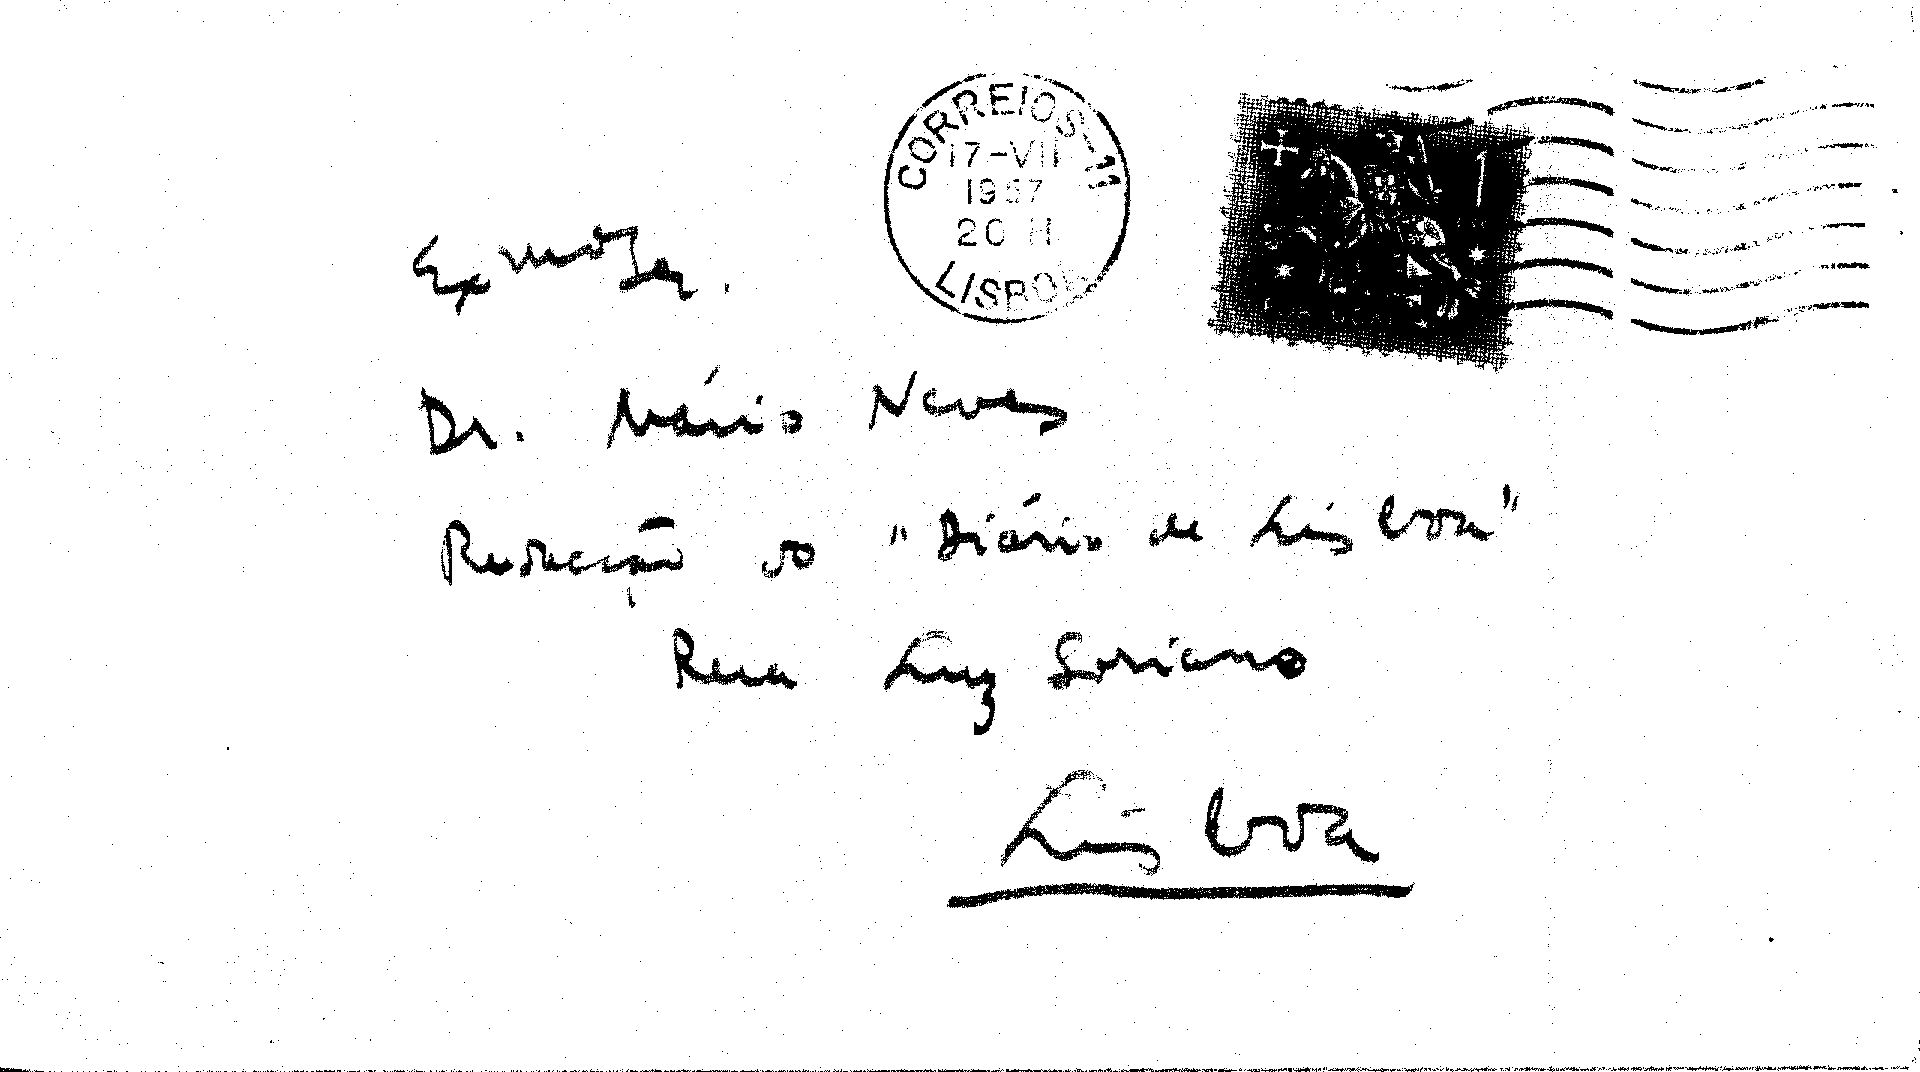 CORREIOS-11
17-VII
1957
20 H
LISBOA
Exmo Sr.
Dr. Mário Neves
Redacção do "Diário de Lisboa"
Rua Luz Soriano
Lisboa